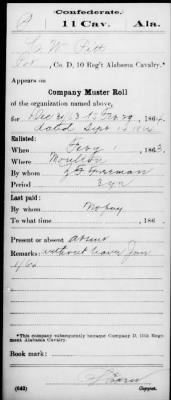 Confederate.
P 11 Cav. Ala.
W Pitt
Co. D, 10 Reg't Alabama Cavalry.*
Appears on
Company Muster Roll
of the organization named above,
for Dec 31, 63 to Feby 29, 1864.
dated Sept
Enlisted:
When Feby 1, 1863.
Where Moulton
By whom
Period 3 yrs
Last paid:
By whom No pay
To what time , 186 .
Present or absent absent
Remarks: without leave Jan
*This company subsequently became Company D, 10th Regiment Alabama Cavalry.
Book mark:
(642) Copyist.